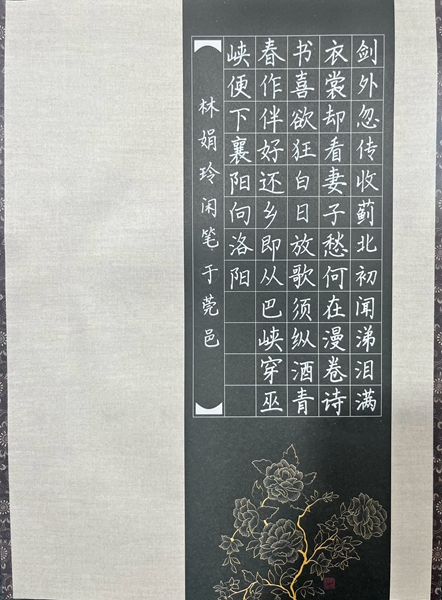 剑外忽传收蓟北初闻涕泪满
衣裳却看妻子愁何在漫卷诗
书喜欲狂白日放歌须纵酒青
春作伴好还乡即从巴峡穿巫
峡便下襄阳向洛阳
林娟玲闲笔于莞邑